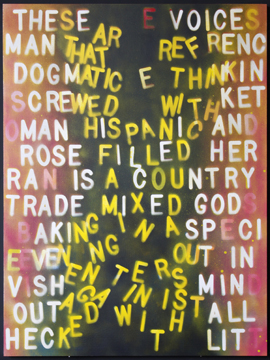 THESE ARE VOICES
MAN THAT REFRENC
DOGMATIC E THINKIN
SCREWED WITH KET
OMAN HISPANIC AND
ROSE FILLED HER
RAN IS A COUNTRY
TRADE MIXED GODS
BAKING IN A SPECI
EEVENING OUT IN
VISH ENTERS MIND
OUTAGAINIST ALL
HECKED WITH LITE